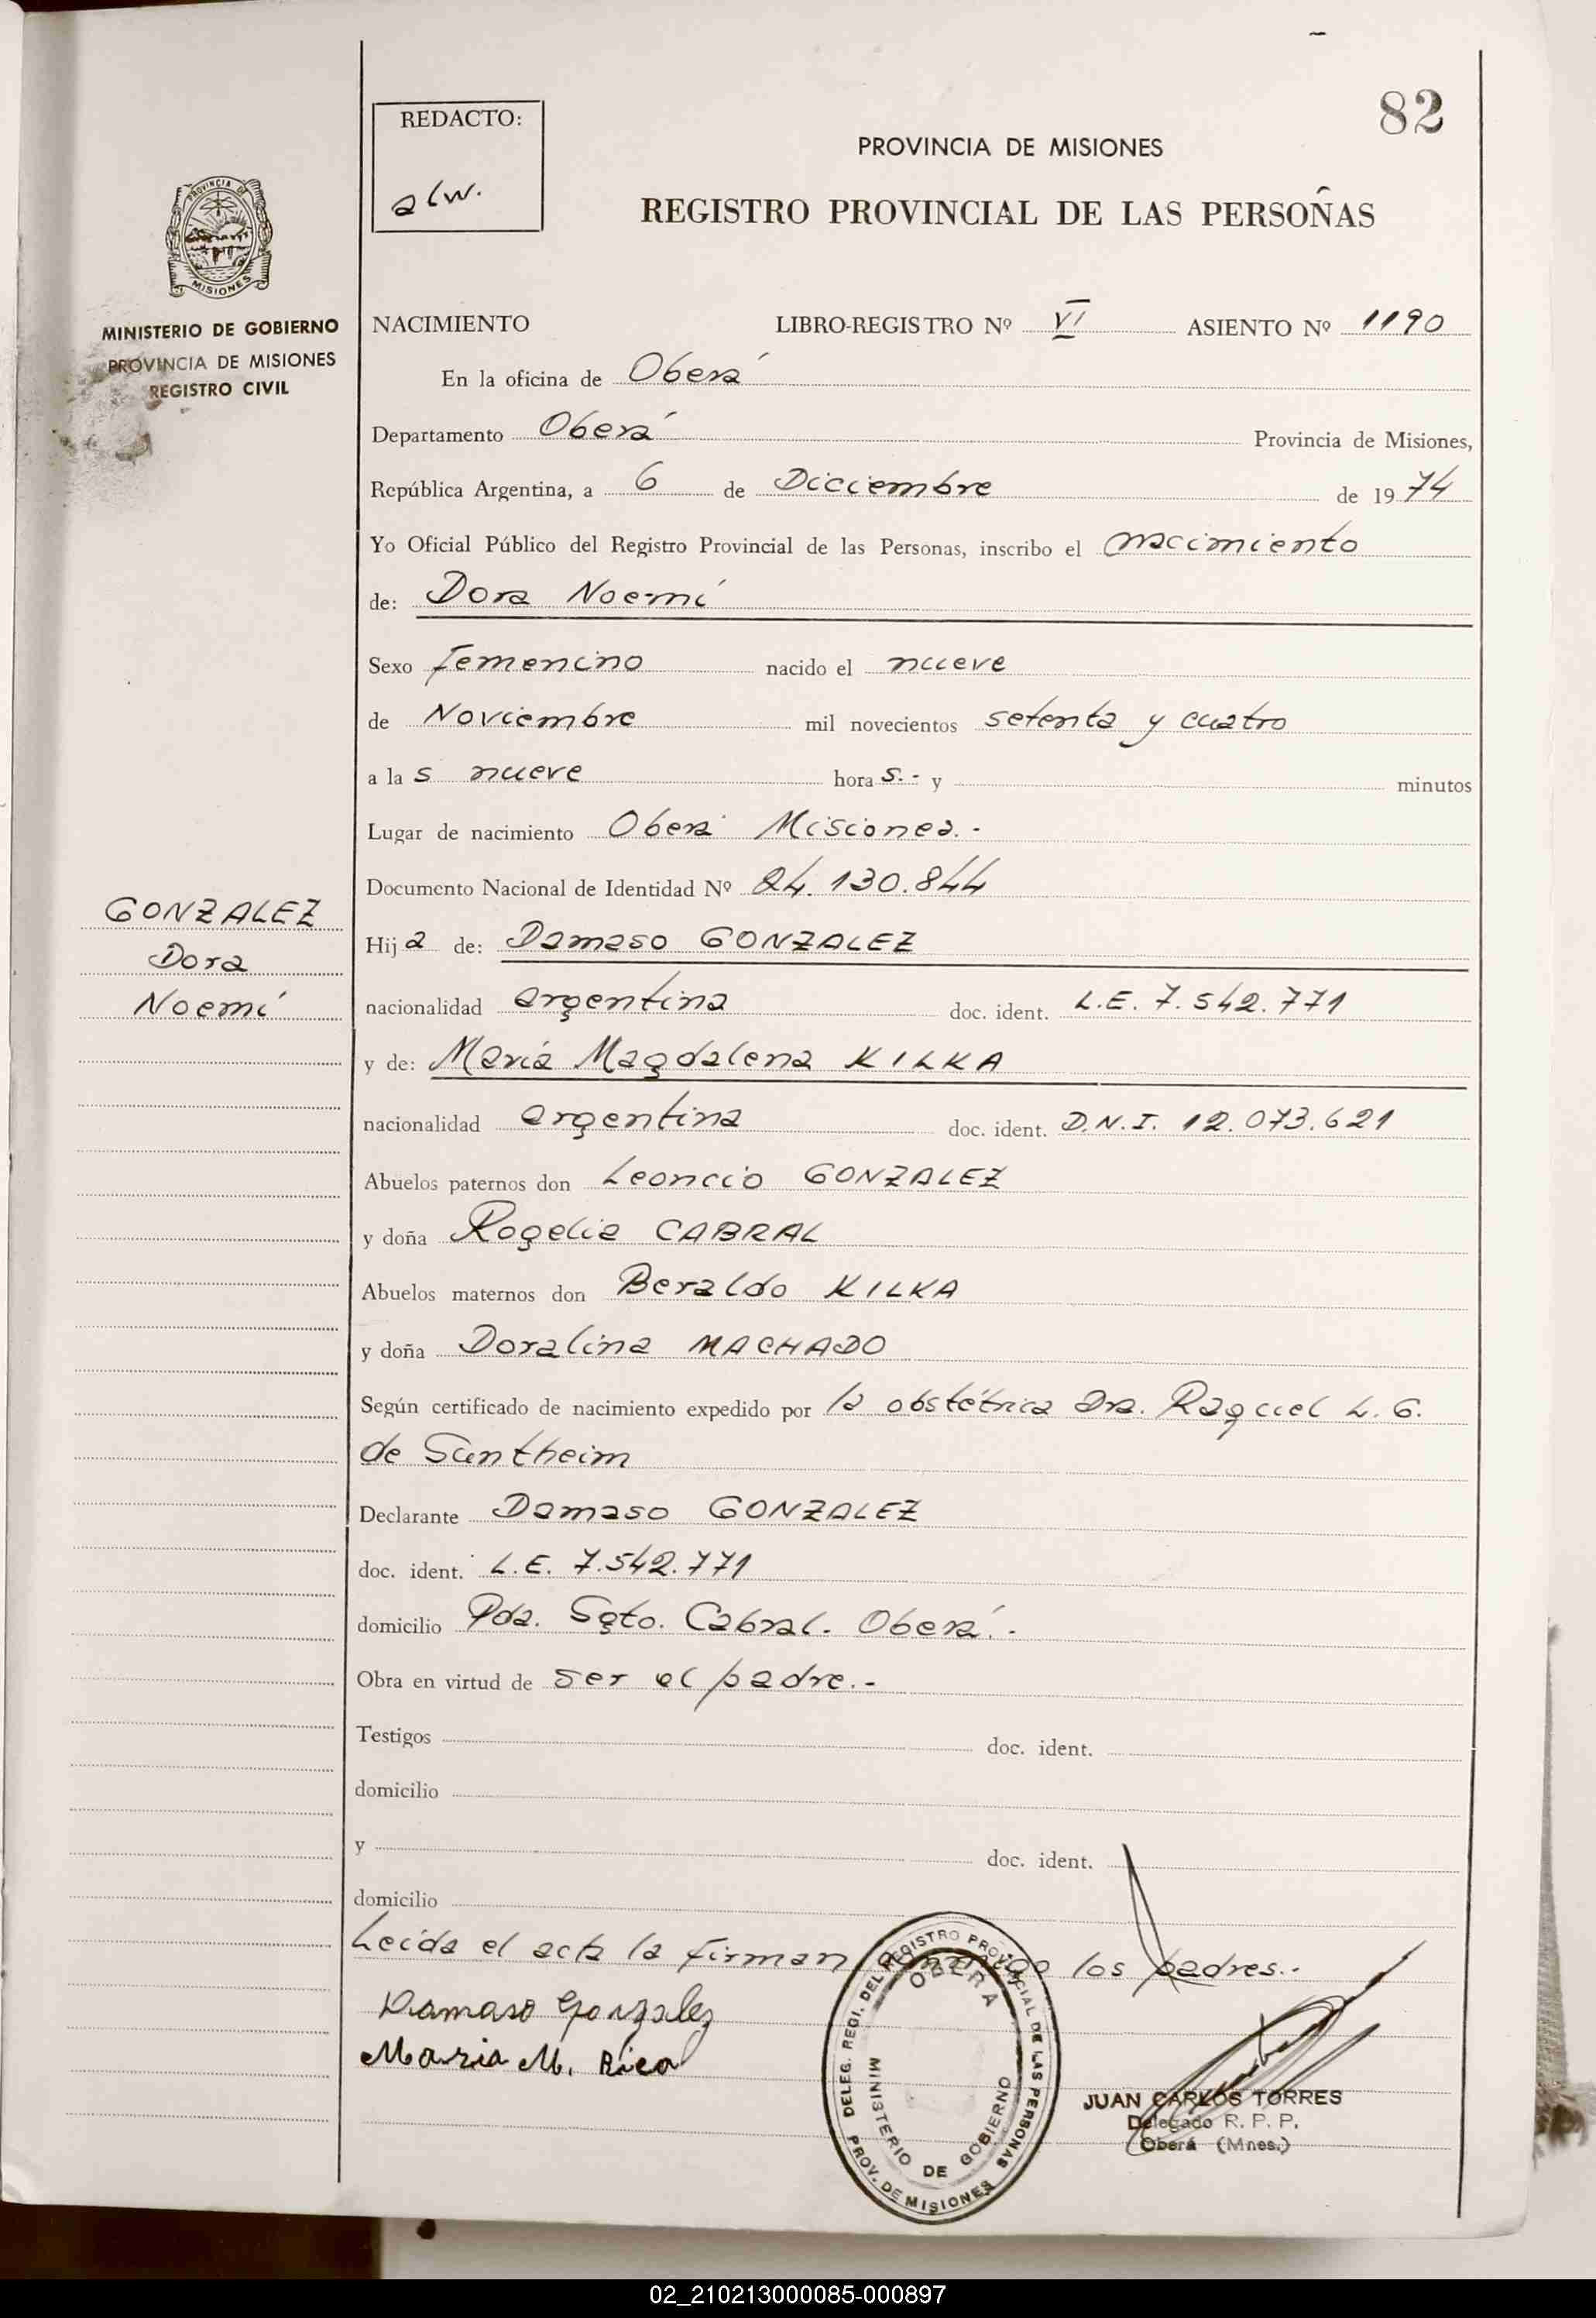 82
REDACTO:
alw.
PROVINCIA DE MISIONES
REGISTRO PROVINCIAL DE LAS PERSOÑAS
PROVINCIA DE
MISIONES
MINISTERIO DE GOBIERNO
PROVINCIA DE MISIONES
REGISTRO CIVIL
NACIMIENTO LIBRO-REGISTRO Nº VI ASIENTO Nº 1190
En la oficina de Oberá
Departamento Oberá Provincia de Misiones,
República Argentina, a 6 de Diciembre de 1974
Yo Oficial Público del Registro Provincial de las Personas, inscribo el nacimiento
de: Dora Noemí
Sexo femenino nacido el nueve
de Noviembre mil novecientos setenta y cuatro
a las nueve horas.- y minutos
Lugar de nacimiento Oberá Misiones.-
Documento Nacional de Identidad Nº 24.130.844
GONZALEZ
Dora
Noemí
Hija de: Damaso GONZALEZ
nacionalidad argentina doc. ident. L.E. 7.542.771
y de: María Magdalena KILKA
nacionalidad argentina doc. ident. D.N.I. 12.073.621
Abuelos paternos don Leoncio GONZALEZ
y doña Rogelia CABRAL
Abuelos maternos don Beraldo KILKA
y doña Doralina MACHADO
Según certificado de nacimiento expedido por la obstétrica Dra. Raquel L. G.
de Suntheim
Declarante Damaso GONZALEZ
doc. ident. L.E. 7.542.771
domicilio Pda. Sgto. Cabral. Oberá.-
Obra en virtud de ser el padre.-
Testigos doc. ident.
domicilio
y doc. ident.
domicilio
Leida el acta la firman conmigo los padres.-
Damaso Gonzalez
Maria M. Rica
DELEG. REGI. DEL REGISTRO PROVINCIAL DE LAS PERSONAS
OBERA
MINISTERIO DE GOBIERNO
PROV. DE MISIONES
JUAN CARLOS TORRES
Delegado R. P. P.
Oberá (Mnes.)
02_210213000085-000897